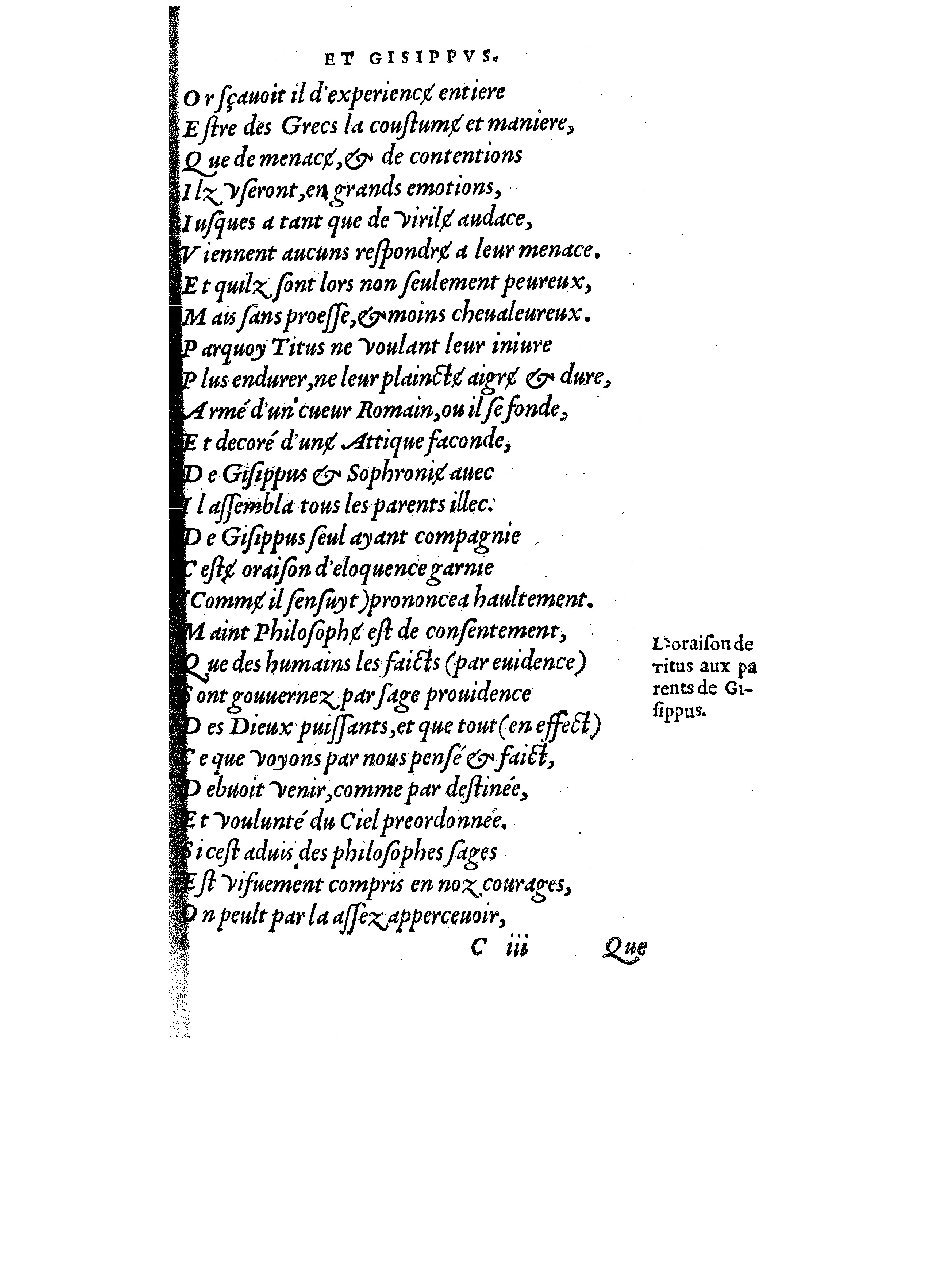 ET GISIPPVS.
Or ſçauoit il d'experiencɇ entiere
Eſtre des Grecs la couſtumɇ et maniere,
Que de menacɇ, & de contentions
Ilz vſeront, en grands emotions,
Iuſques a tant que de virilɇ audace,
Viennent aucuns reſpondrɇ a leur menace.
Et quilz ſont lors non ſeulement peureux,
Mais ſans proeſſe, & moins cheualeureux.
Parquoy Titus ne voulant leur iniure
Plus endurer, ne leur plainctɇ aigrɇ & dure,
Armé d'un cueur Romain, ou il ſe fonde,
Et decoré d'unɇ Attique faconde,
De Giſippus & Sophroniɇ auec
Il aſſembla tous les parents illec:
De Giſippus ſeul ayant compagnie
Ceſtɇ oraiſon d'eloquence garnie
(Commɇ il ſenſuyt) prononcea haultement.
Maint Philoſophɇ eſt de conſentement,
Que des humains les faicts (par euidence)
Sont gouuernez par ſage prouidence
Des Dieux puiſſants, et que tout (en effect)
Ce que voyons par nous penſé & faict,
Debuoit venir, comme par deſtinée,
Et voulunté du Ciel preordonnée.
Si ceſt aduis des philoſophes ſages
Eſt vifuement compris en noz courages,
On peult par la aſſez apperceuoir,
C iii Que
L'oraiſon de
Titus aux pa
rents de Gi-
ſippus.